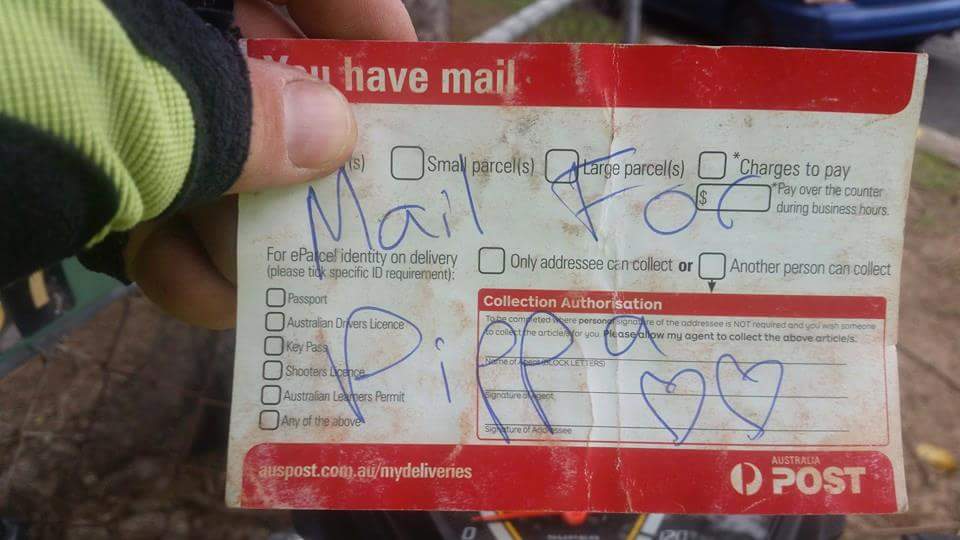 You have mail
(s) Small parcel(s) Large parcel(s) *Charges to pay
$ *Pay over the counter
during business hours.
Mail For
For eParcel identity on delivery
(please tick specific ID requirement):
Only addressee can collect or Another person can collect
Passport
Australian Drivers Licence
Key Pass
Shooters Licence
Australian Learners Permit
Any of the above
Collection Authorisation
To be completed where personal signature of the addressee is NOT required and you wish someone
to collect the article/s for you. Please allow my agent to collect the above article/s.
Name of Agent (BLOCK LETTERS)
Signature of Agent
Signature of Addressee
Pippa
auspost.com.au/mydeliveries
AUSTRALIA
POST
0 120